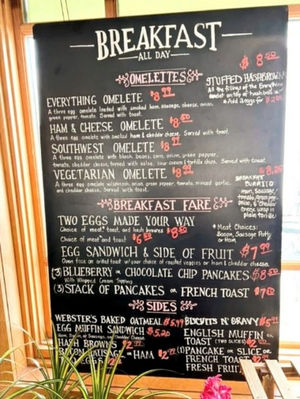 BREAKFAST
ALL DAY
OMELETTES
EVERYTHING OMELETE $8.99
A three egg omelete loaded with smoked ham, sausage, cheese, onion,
green pepper, tomato. Served with toast.
HAM & CHEESE OMELETE $8.50
A three egg omelete with ham & cheddar cheese. Served with toast.
SOUTHWEST OMELETE $8.99
A three egg omelete with black beans, corn, onion, green pepper,
tomato, cheddar cheese, topped with salsa, sour cream & tortilla chips. Served with toast.
VEGETARIAN OMELETE $8.99
A three egg omelete with onion, green pepper, tomato, minced garlic,
and cheddar cheese. Served with toast.
$8.50
STUFFED HASHBROWNS
All the fillings of the Everything
omelet on top of hashbrowns
Add 2 eggs for
BREAKFAST FARE
TWO EGGS MADE YOUR WAY
Choice of meat, toast, and hash browns $8.50
Choice of meat and toast $6.50
EGG SANDWICH & SIDE OF FRUIT $7.99
(3) BLUEBERRY or CHOCOLATE CHIP PANCAKES $8.50
With Whipped Cream Topping
(3) STACK OF PANCAKES or FRENCH TOAST $7.00
BREAKFAST
BURRITO
Meat Choices:
Bacon, Sausage Patty
or Ham
SIDES
WEBSTER'S BAKED OATMEAL $5.99
EGG MUFFIN SANDWICH $5.20
HASH BROWNS $2.99
BACON, SAUSAGE or HAM $2.99
EGGS
BISCUITS N' GRAVY
ENGLISH MUFFIN or
TOAST (TWO SLICES)
(1) PANCAKE or SLICE OF
FRENCH TOAST
FRESH FRUIT